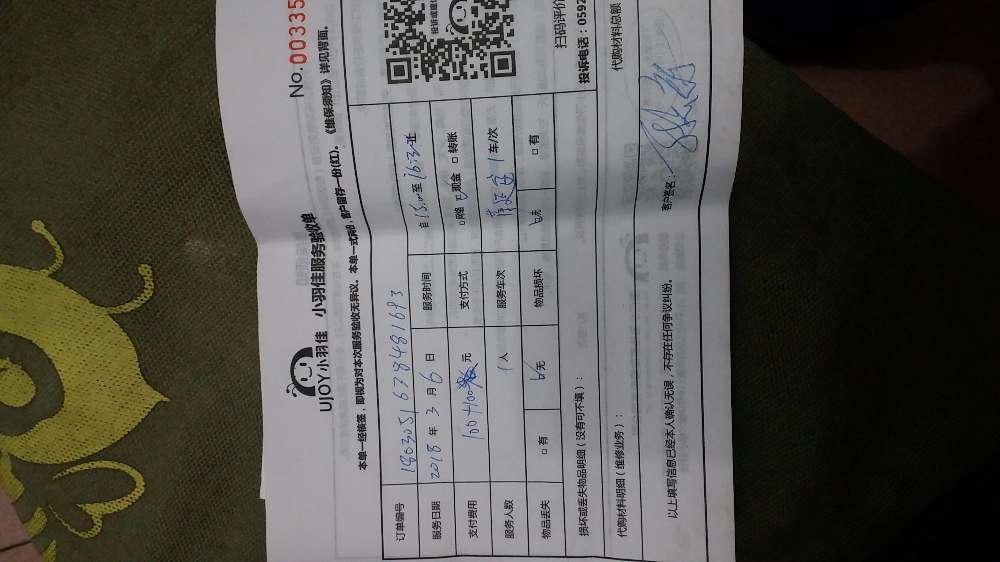 No.00335
UJOY小羽佳 小羽佳服务验收单
本单一经核签，即视为对本次服务验收无异议。本单一式两份，客户留存一份(红)。《维保须知》详见背面。
订单编号 18030516378481693
服务日期 2018 年 3 月 6 日 服务时间 自 至
支付费用 100+100 元 支付方式 □网络 现金 □转账
服务人数 1 人 服务车次 1 车/次
物品丢失 □有 无 物品损坏 无 □有
扫码评价
投诉电话：0592
损坏或丢失物品明细（没有可不填）：
代购材料明细（维修业务）： 代购材料总额
以上填写信息已经本人确认无误，不存在任何争议纠纷。 客户签名：